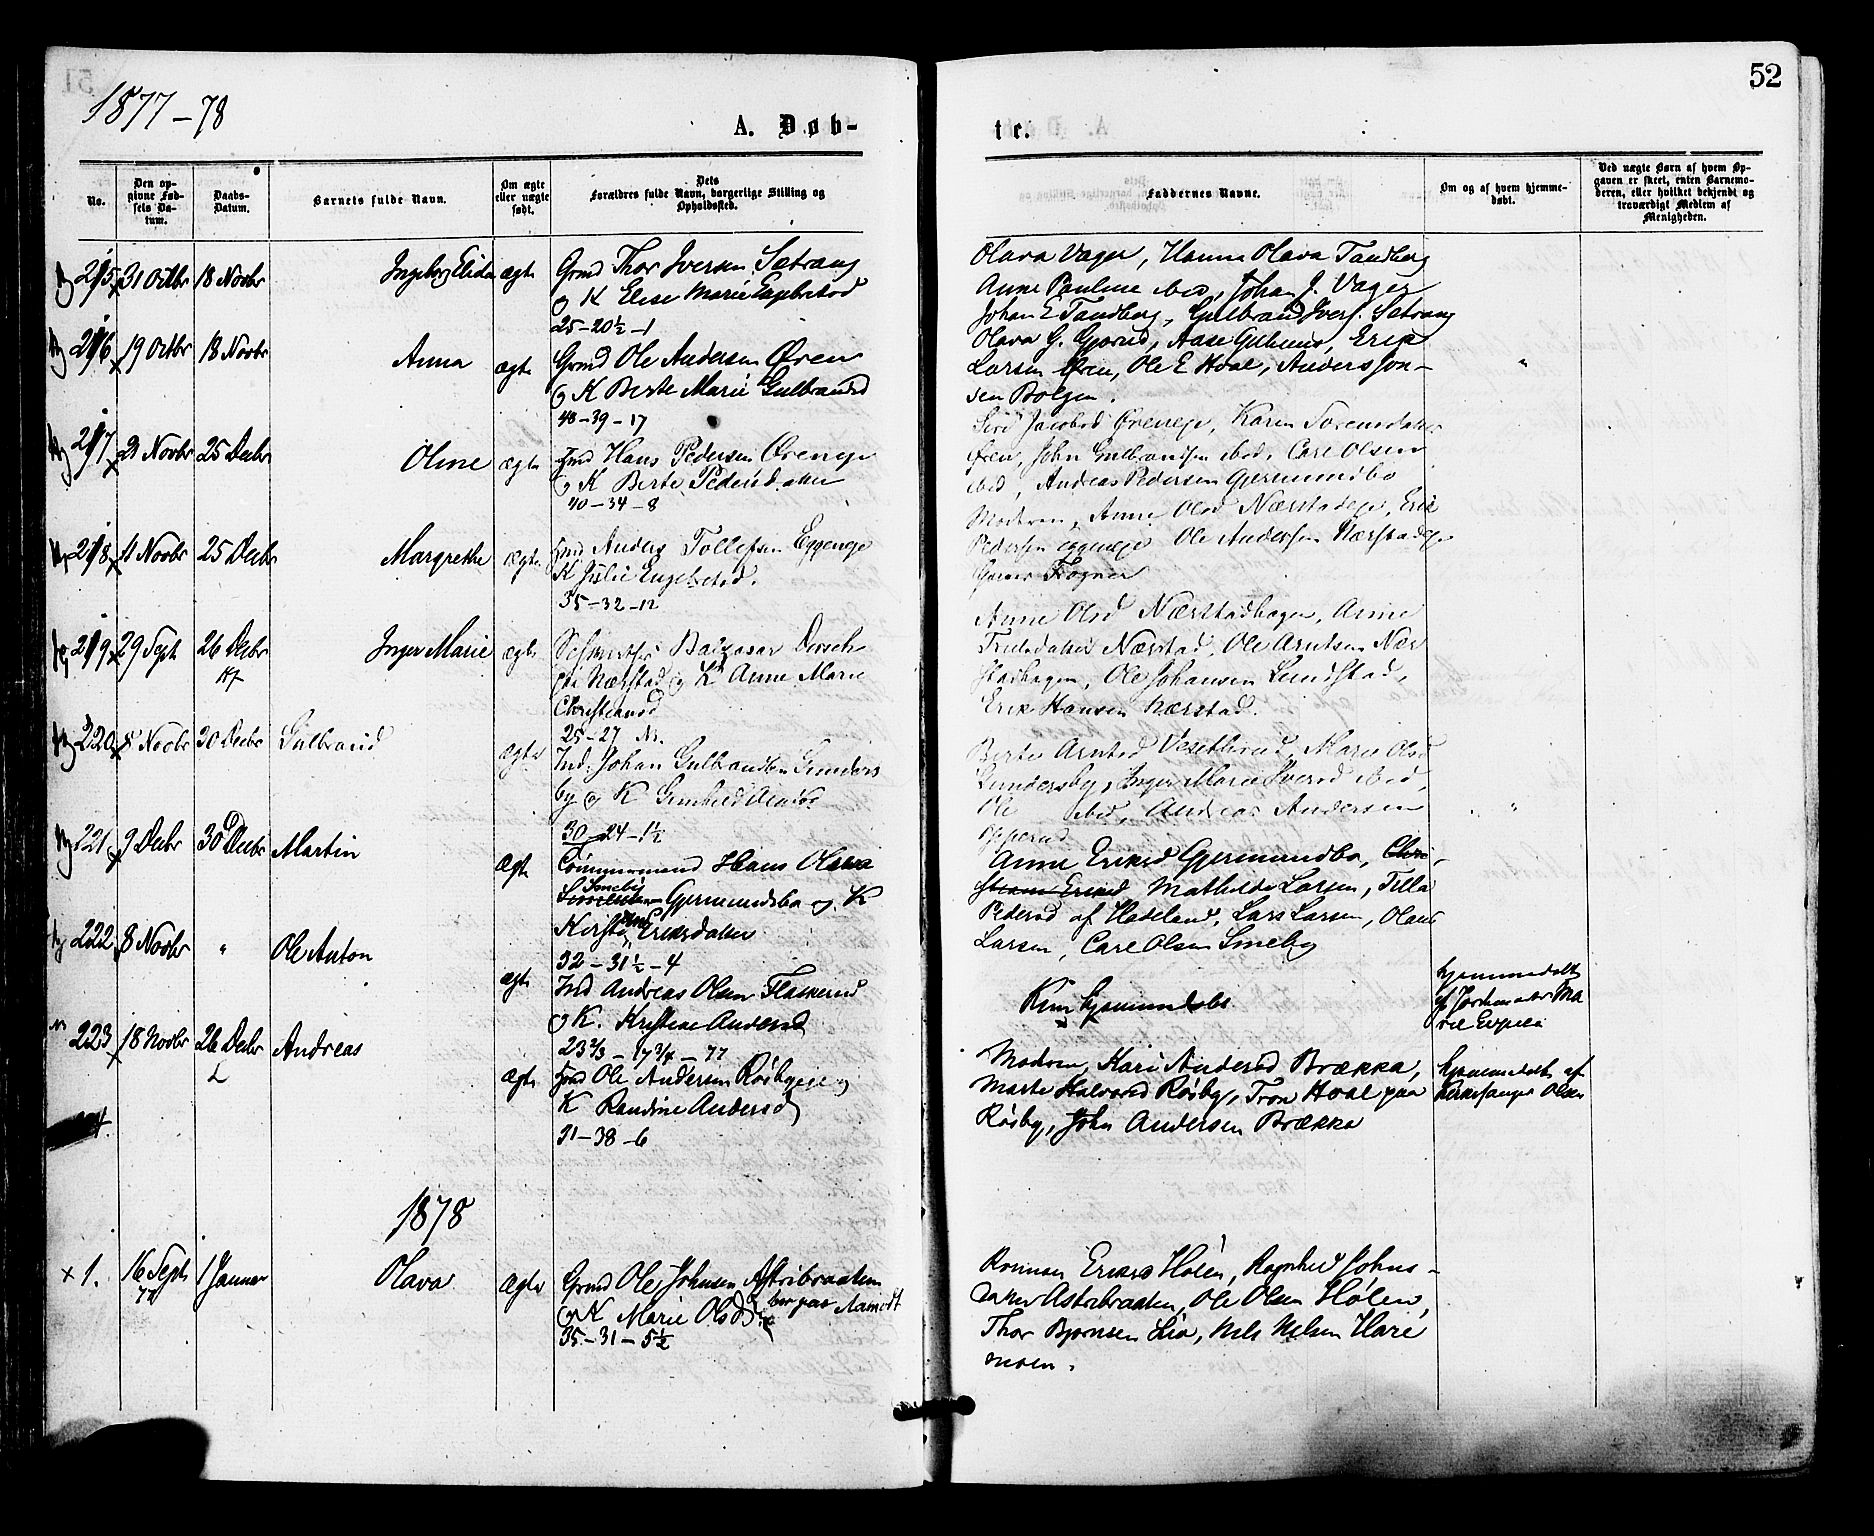 1877-78
52
A. Døb-
te.
No.
Den op-
givne Fød-
sels Da-
tum.
Daabs-
Datum.
Barnets fulde Navn.
Om ægte
eller uægte
født.
Dets
Forældres fulde Navn, borgerlige Stilling og
Opholdssted.
Faddernes Navne.
Om og af hvem hjemme-
døbt.
Ved uægte Børn af hvem Op-
gaven er skeet, enten Barnemo-
deren, eller hvilket bekjendt og
troværdigt Medlem af
Menigheden.
215 31 Octbr 18 Novbr Ingeborg Elida ægte
Grmd Thor Iversen Sætrang
og K Elise Marie
25-20½-1
Olava Vager, Hanna Olava Tandberg
Anne Pauline ibid, Johan J. Vager
Johan E Tandberg, Gulbrand Ivers. Sætrang
216 19 Octbr 18 Novbr Anna ægte
Grmd Ole Andersen Øren
og K Berte Marie Gulbrandsd
40-39-17
Olava G. Gjørud, Aase Gulhus, Erik
Larsen Øren, Ole E Hval, Anders Jon-
sen Bolgen.
217 21 Novbr 25 Decbr Oline ægte
Hans Pedersen Øreneje
og K Berte Pedersdatter
40-34-8
Siri Jacobsd Øreneje, Karen Sørensdatter
Øren, John Gulbrandsen ibid, Carl Olsen
ibid, Andreas Pedersen Gjermundbo
218 11 Novbr 25 Decbr Margrethe ægte
Anders Tollefsen Eggeneje
K Julie Engebretsd.
35-32-12
Modren, Anne Olsd Nærstadeje, Erik
Pedersen eggeneje Ole Andersen Nærstadeje
Frogner
219 29 Sept 26 Decbr Inger Marie ægte
Balzasar
Nærstad og K Anne Marie
Christiansd
25-27
Anne Olsd Nærstadhagen, Anne
Nærstad, Ole Arntsen Nær
stadhagen, Ole Johansen Lundstad,
Erik Hansen Nærstad.
220 8 Novbr 30 Decbr Gulbrand ægte
Ind. Johan Gulbrandsen Gunders
by og K Gunhild Arntsd
30-24-1½
Berte Arntsd Veselterud, Marie Olsd
Gundersby, Inger Marie Iversd ibid,
Ole ibid, Andreas Andersen
Opperud
221 9 Decbr 30 Decbr Martin ægte
Tømmermand Hans Olsen
Smeby Gjermundsbo og K
Eriksdatter
32-31½-4
Anne Eriksd Gjermundbo, Chri-
stian Eriksd Mathilde Larsen, Tilla
Pedersd af Hadeland, Lars Larsen, Olaus
Larsen, Carl Olsen Smeby
222 8 Novbr " Ole Anton ægte
Ind Andreas Olsen Flaskerud
og K. Kristine Andersd
23⅔-17¾-77
Kun hjemmedøbt
hjemmedøbt
af Jordemoder Ma
rie
223 18 Novbr 26 Decbr Andreas ægte
Ole Andersen Røsbyeje og
K Randine Andersd
31-38-6
Modren, Kari Andersd Brækka,
Marte Halvorsd Røsby, Tron Hval paa
Røsby, John Andersen Brække
hjemmedøbt af
Kirkesanger Olsen
1878
1. 16 Sept 77 1 Januar Olava ægte
Grmd Ole Johnsen Astribraaten
og K Marie Olsd bor paa Aamodt
35-31-5½
Ronnau Eriksd Hølen, Ragnhild Johns-
datter Astribraaten, Ole Olsen Hølen,
Thor Bjørnsen Lia, Nels Nelsen Hare
moen.